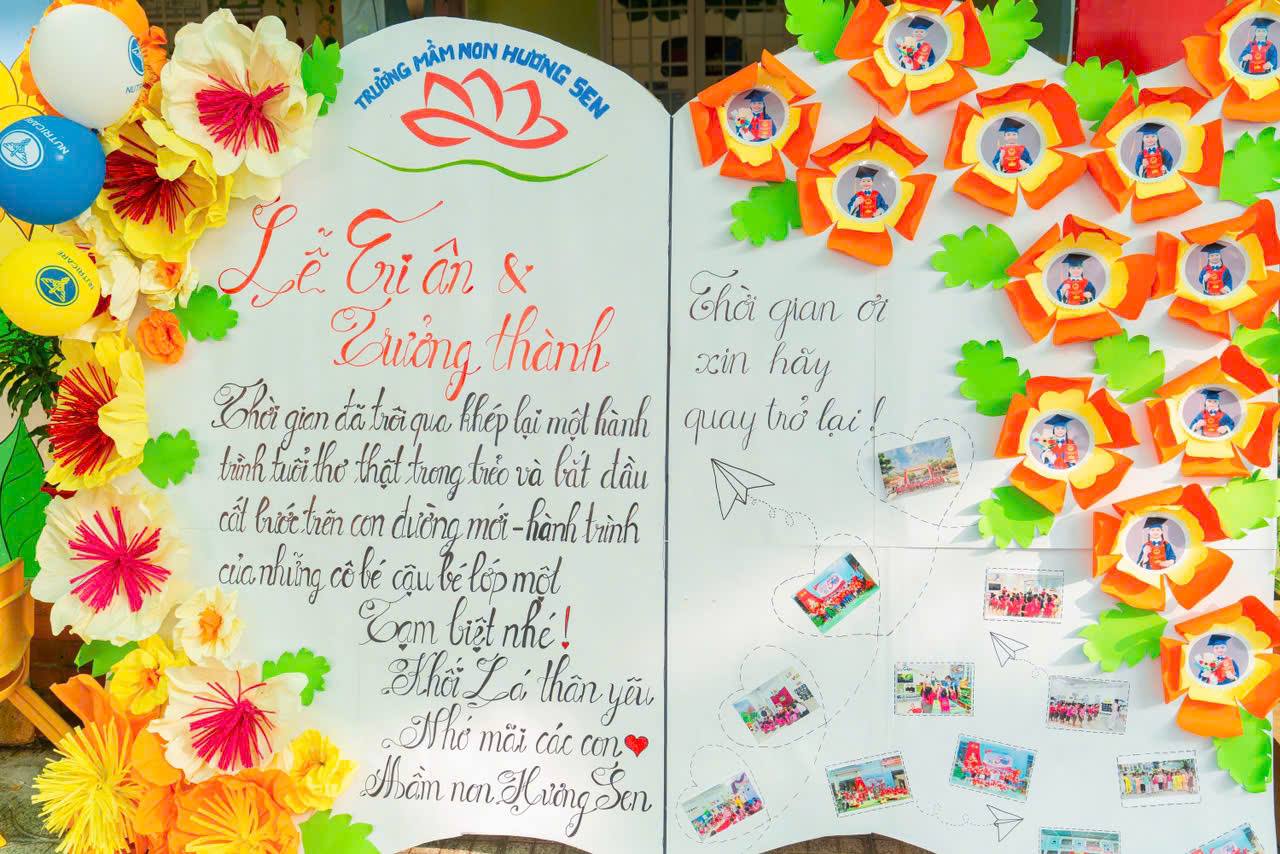 TRƯỜNG MẦM NON HƯƠNG SEN
Lễ Tri ân &
Trưởng thành
Thời gian đã trôi qua, khép lại một hành
trình tuổi thơ thật trong trẻo và bắt đầu
cất bước trên con đường mới - hành trình
của những cô bé cậu bé lớp một
Tạm biệt nhé!
Khối Lá thân yêu
Nhớ mãi các con
Mầm non Hương Sen
Thời gian ơi
xin hãy
quay trở lại!
NUTRICARE
NUTRICARE